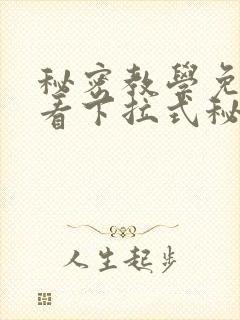 秘密教學免
看下拉式秘
人生起步